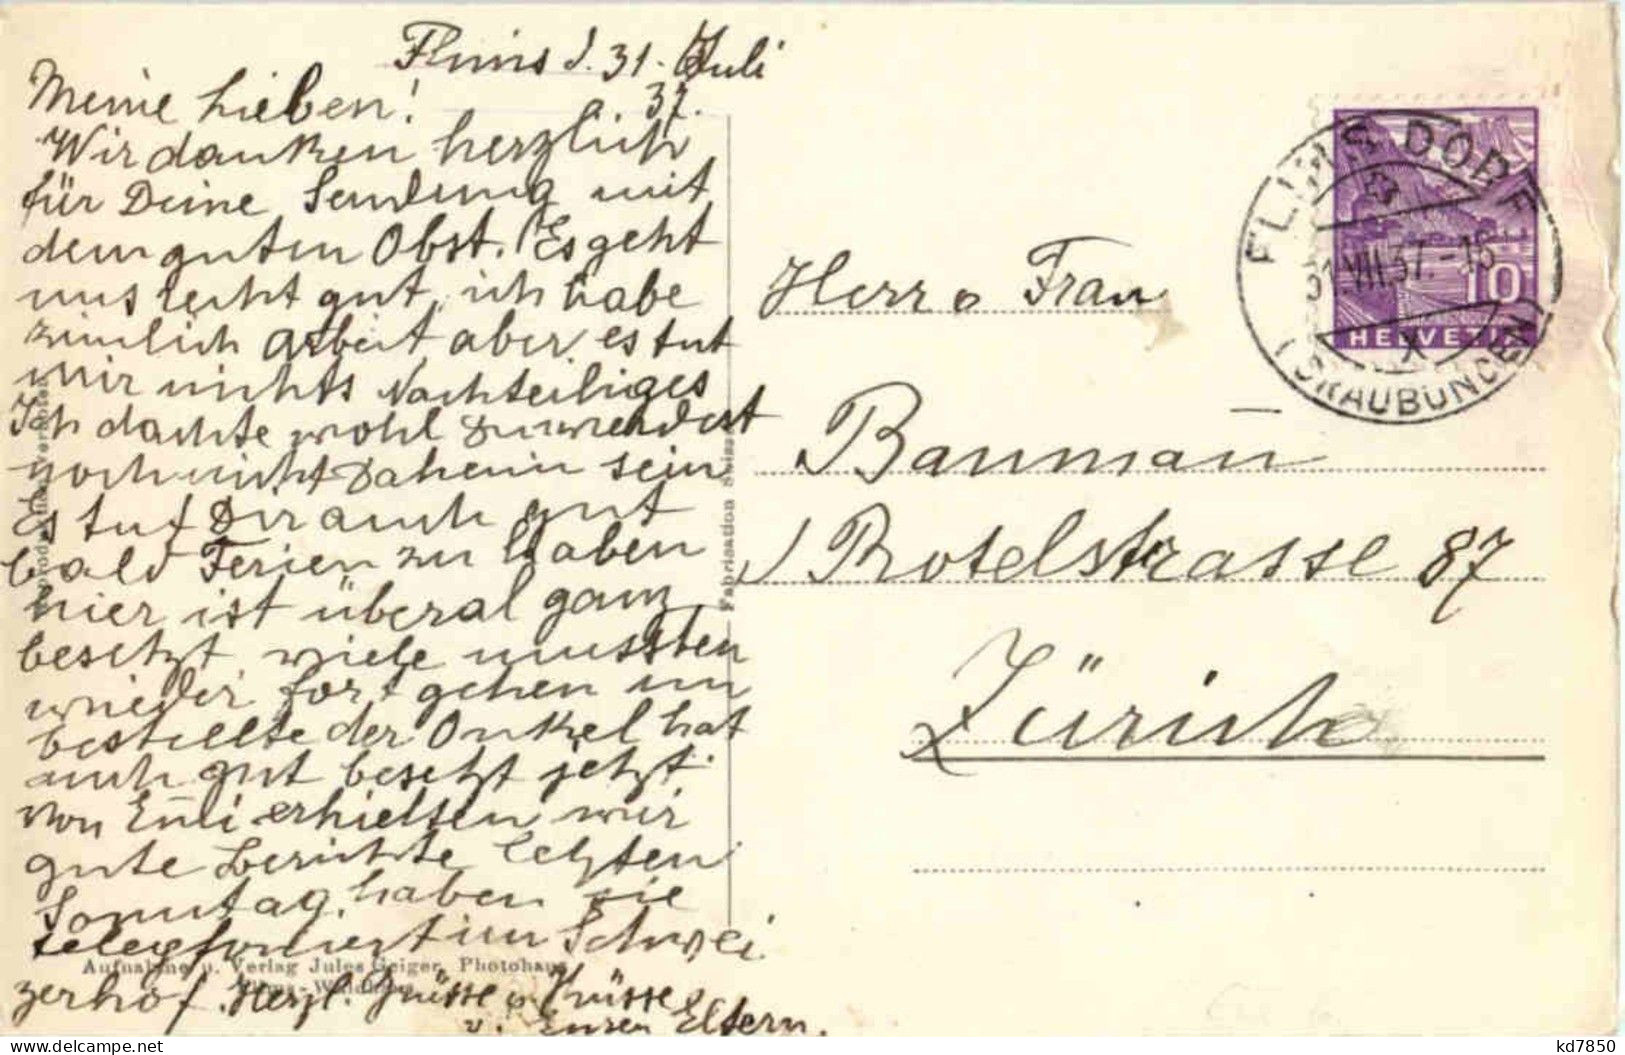 Flims d. 31. Juli
37.
Meine Lieben!
Wir danken herzlich
für Deine Sendung mit
dem guten Obst. Es geht
uns recht gut, ich habe
zimlich Arbeit aber es tut
mir nichts Nachteiliges
Ich dachte wohl Du werdest
noch nicht Daheim sein
Es tut Dir auch gut
bald Ferien zu haben
hier ist überal ganz
besetzt, viele mussten
wieder fort gehen un
bestellte der Onkel hat
auch gut besetzt jetzt.
von Emli erhielten wir
gute Berichte letzten
Sonntag haben sie
telegfoniert im Schwei
zerhof. Herzl. Grüsse u. Küsse
v. Euren Eltern.
Aufnahme u. Verlag Jules Geiger, Photohaus
Flims-Waldhaus
Fabrication Suisse
FLIMS DORF
31.VII.37.-16
(GRAUBÜNDEN)
10
HELVETIA
Herr u Frau
Bauman
Rotelstrasse 87
Zürich
kd7850